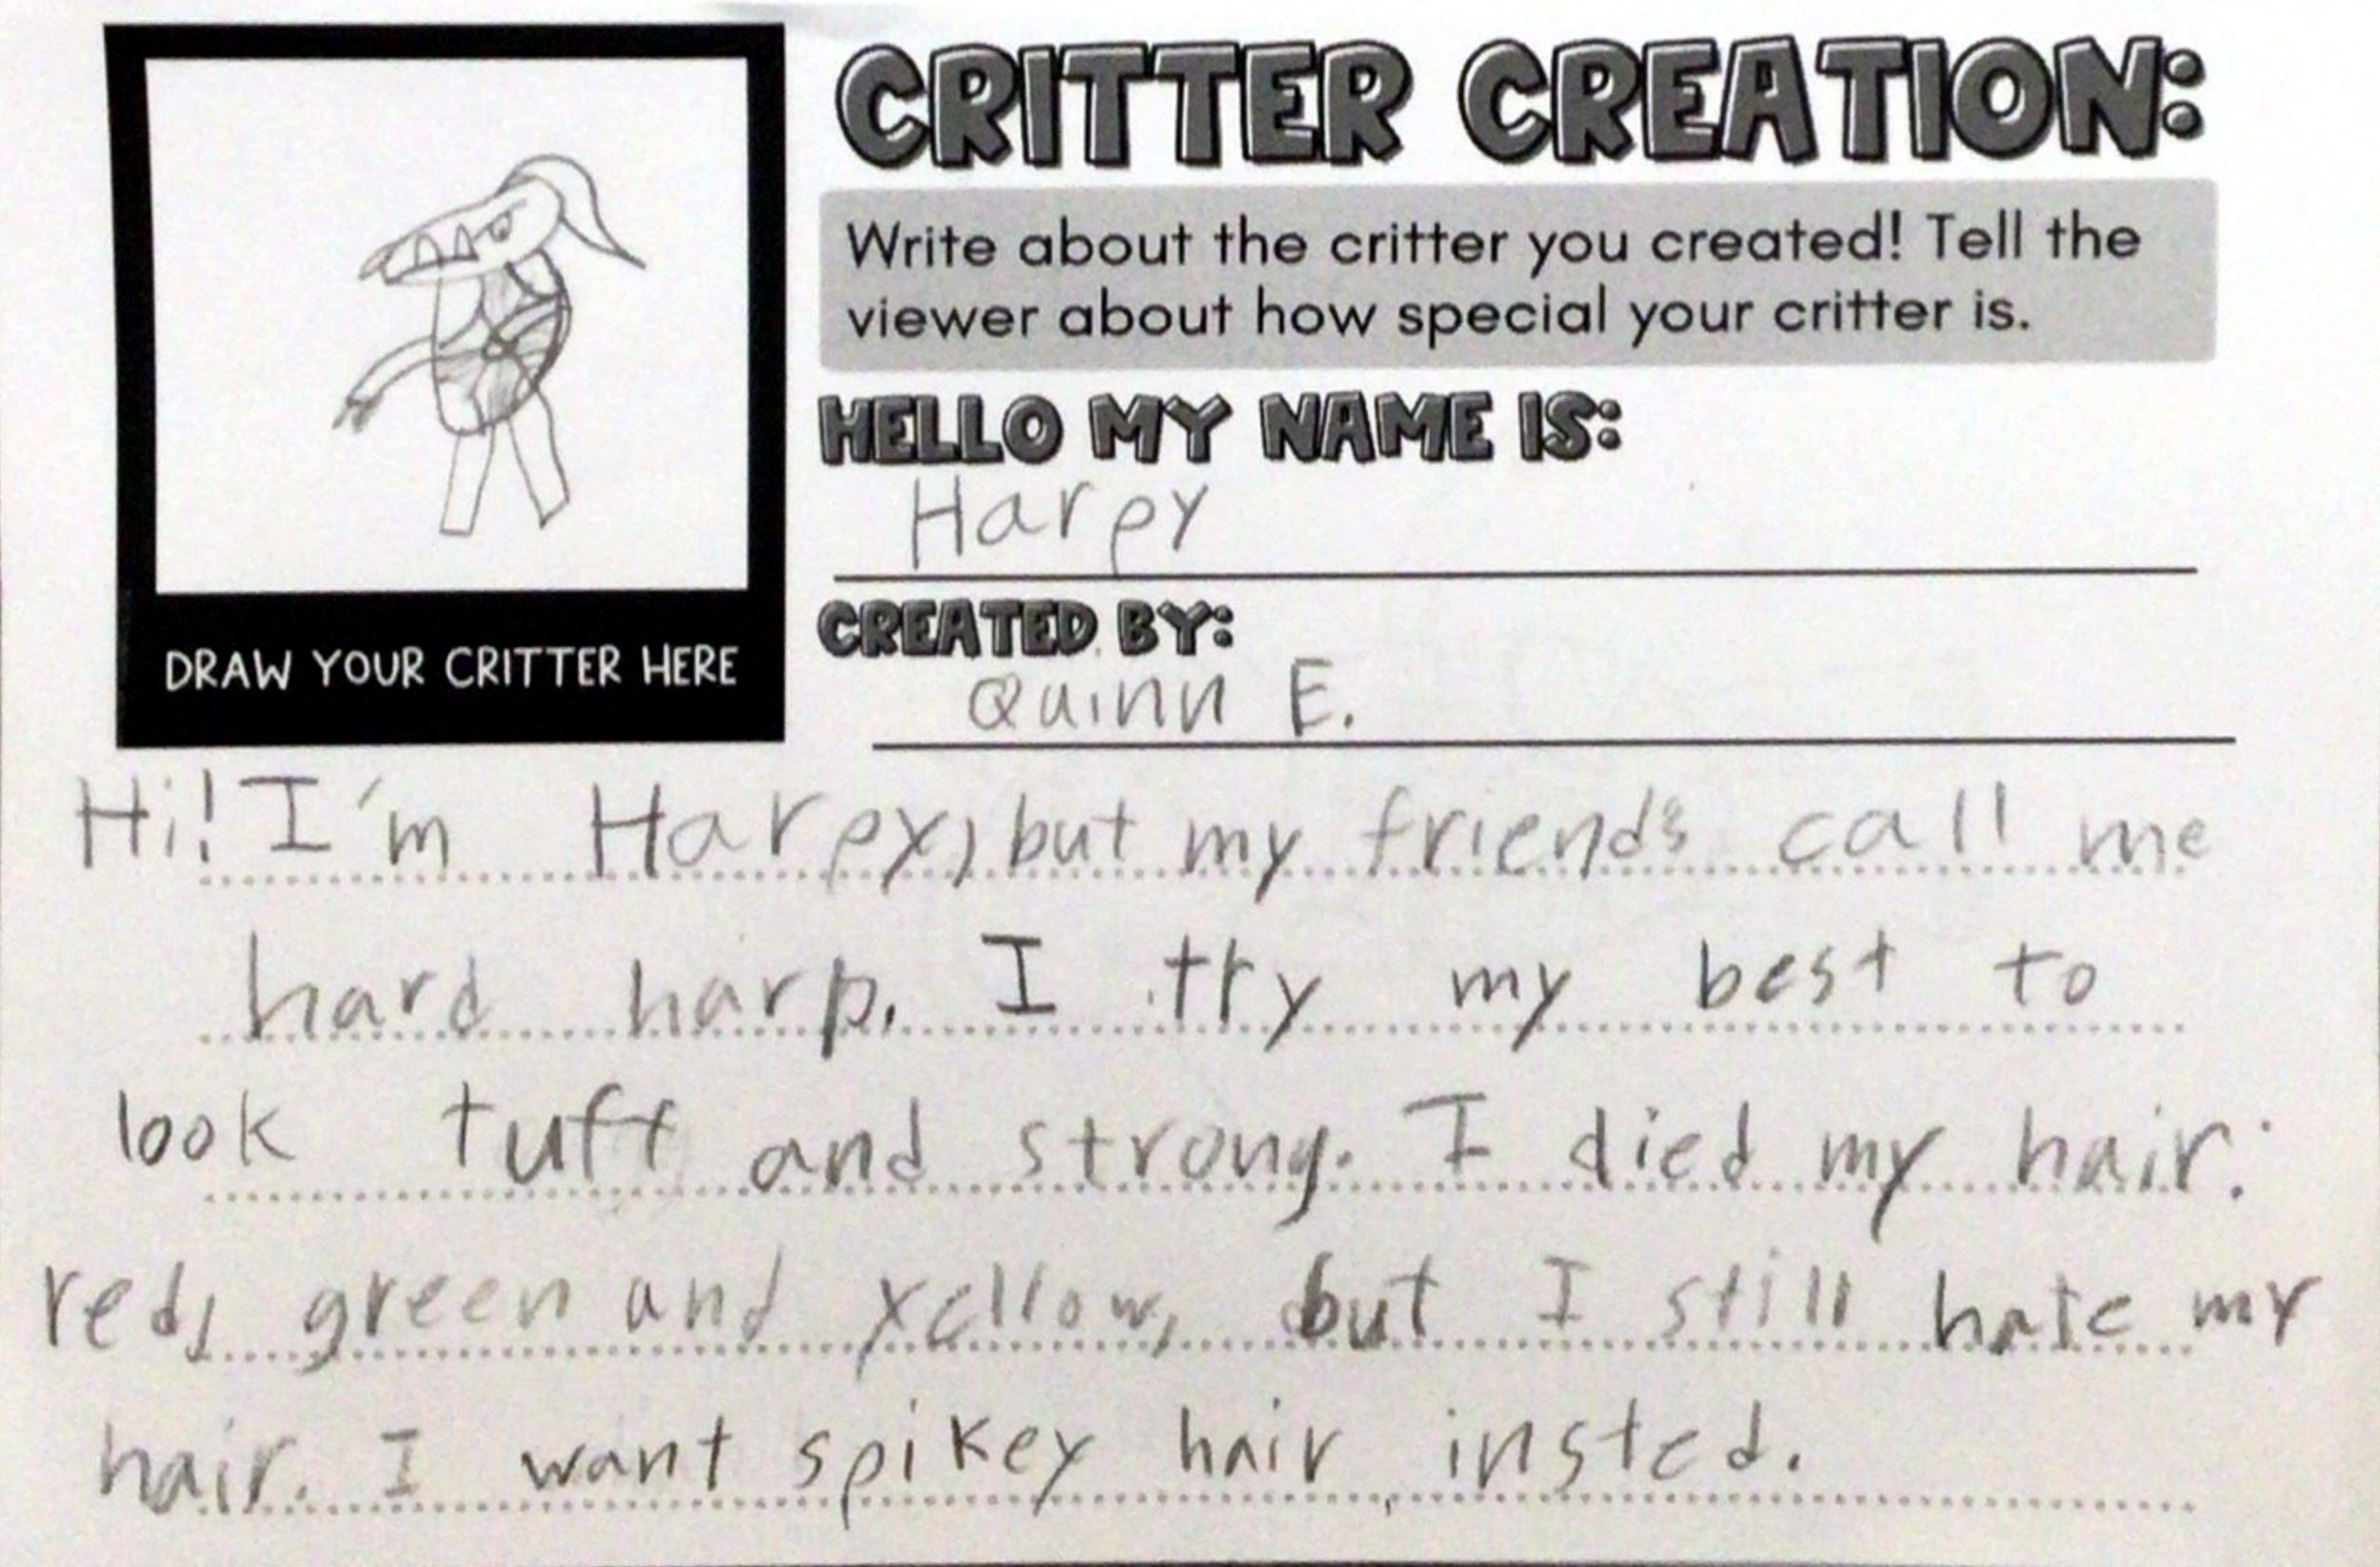 CRITTER CREATION:
Write about the critter you created! Tell the
viewer about how special your critter is.
HELLO MY NAME IS:
Harpy
CREATED BY:
Quinn E.
DRAW YOUR CRITTER HERE
Hi! I'm Harpy, but my friends call me
hard harp. I try my best to
look tuff and strong. I died my hair:
red, green and yellow, but I still hate my
hair. I want spikey hair, insted.